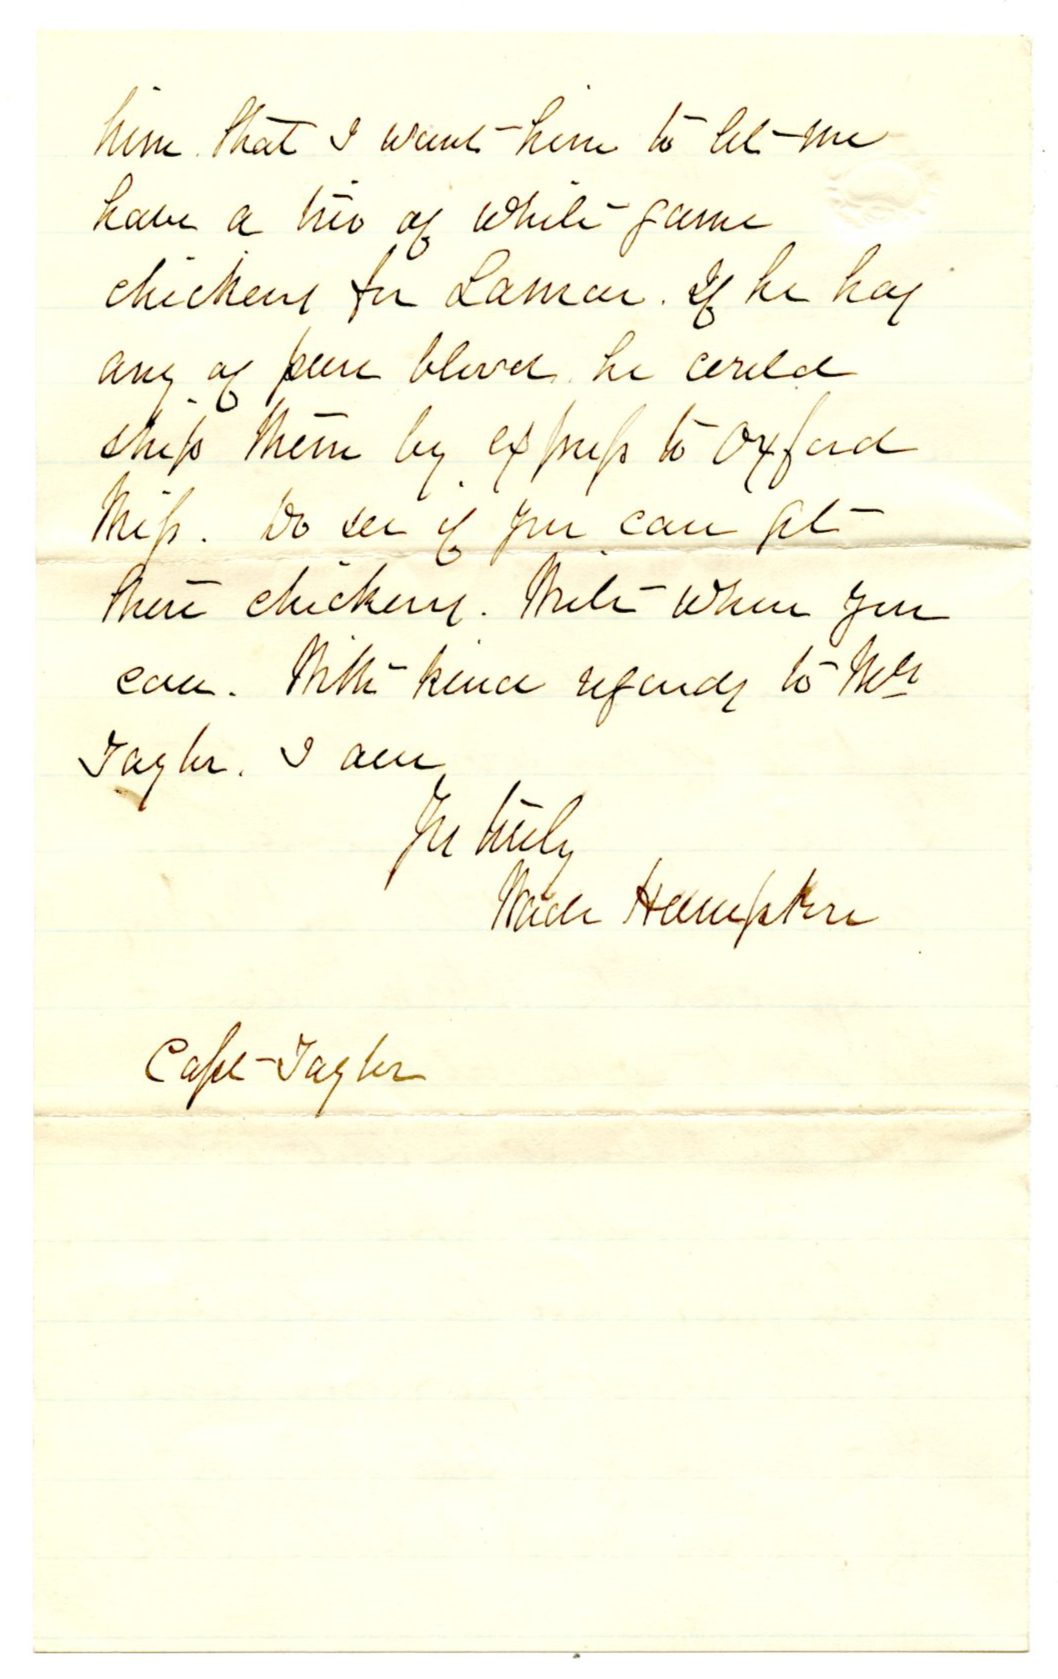 him that I want him to let me
have a trio of white game
chickens for Lamar. If he has
any of pure blood he could
ship them by express to Oxford
Miss. Do see if you can get
these chickens. Write when you
can. With kind regards to Mrs
Taylor. I am
Yrs truly
Wade Hampton
Capt Taylor